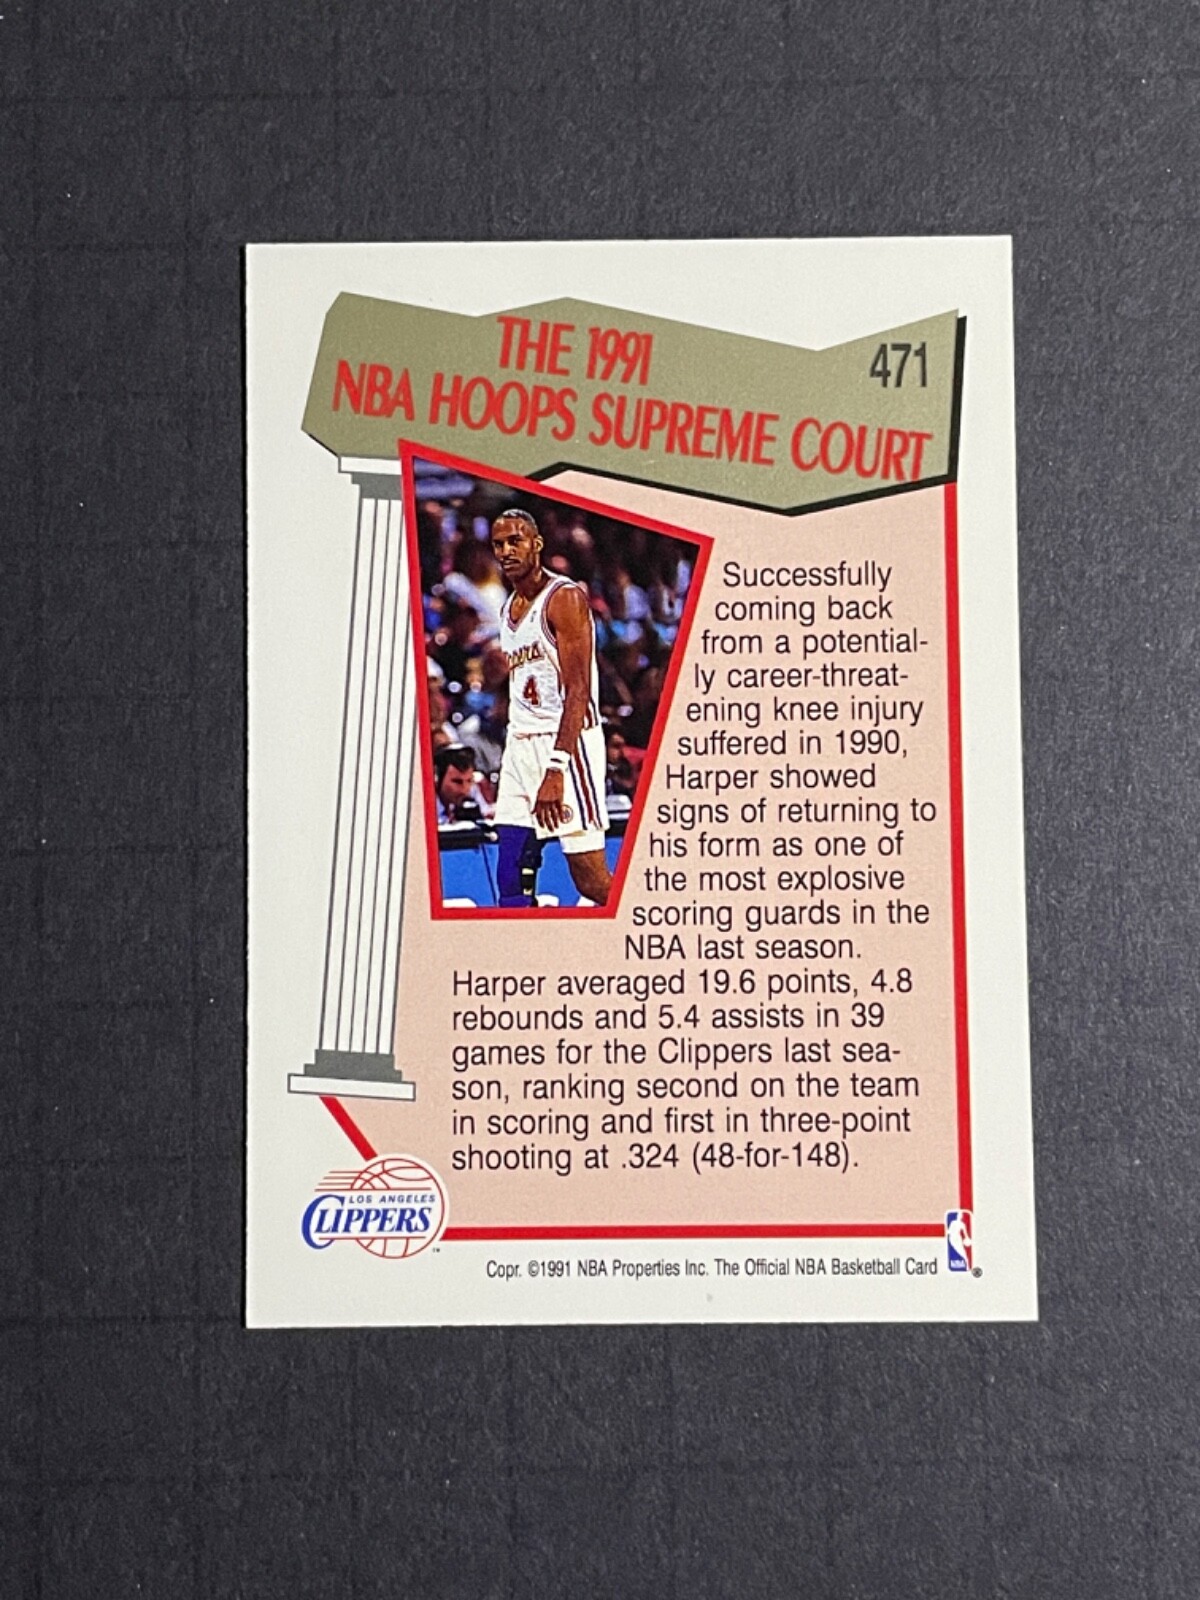 THE 1991
NBA HOOPS SUPREME COURT
471
Successfully
coming back
from a potential-
ly career-threat-
ening knee injury
suffered in 1990,
Harper showed
signs of returning to
his form as one of
the most explosive
scoring guards in the
NBA last season.
Harper averaged 19.6 points, 4.8
rebounds and 5.4 assists in 39
games for the Clippers last sea-
son, ranking second on the team
in scoring and first in three-point
shooting at .324 (48-for-148).
4
LOS ANGELES
CLIPPERS
™
Copr. ©1991 NBA Properties Inc. The Official NBA Basketball Card
NBA
®